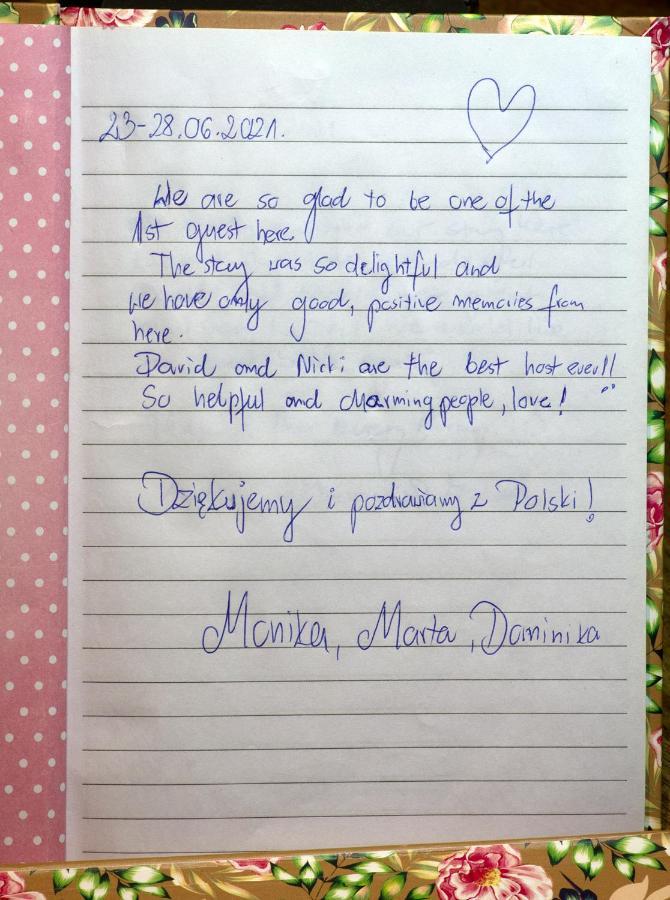 23-28.06.2021.
We are so glad to be one of the
1st guest here.
The stay was so delightful and
we have only good, positive memories from
here.
David and Nicki are the best host ever!!
So helpful and charming people, love!
Dziękujemy i pozdrawiamy z Polski!
Monika, Marta, Dominika